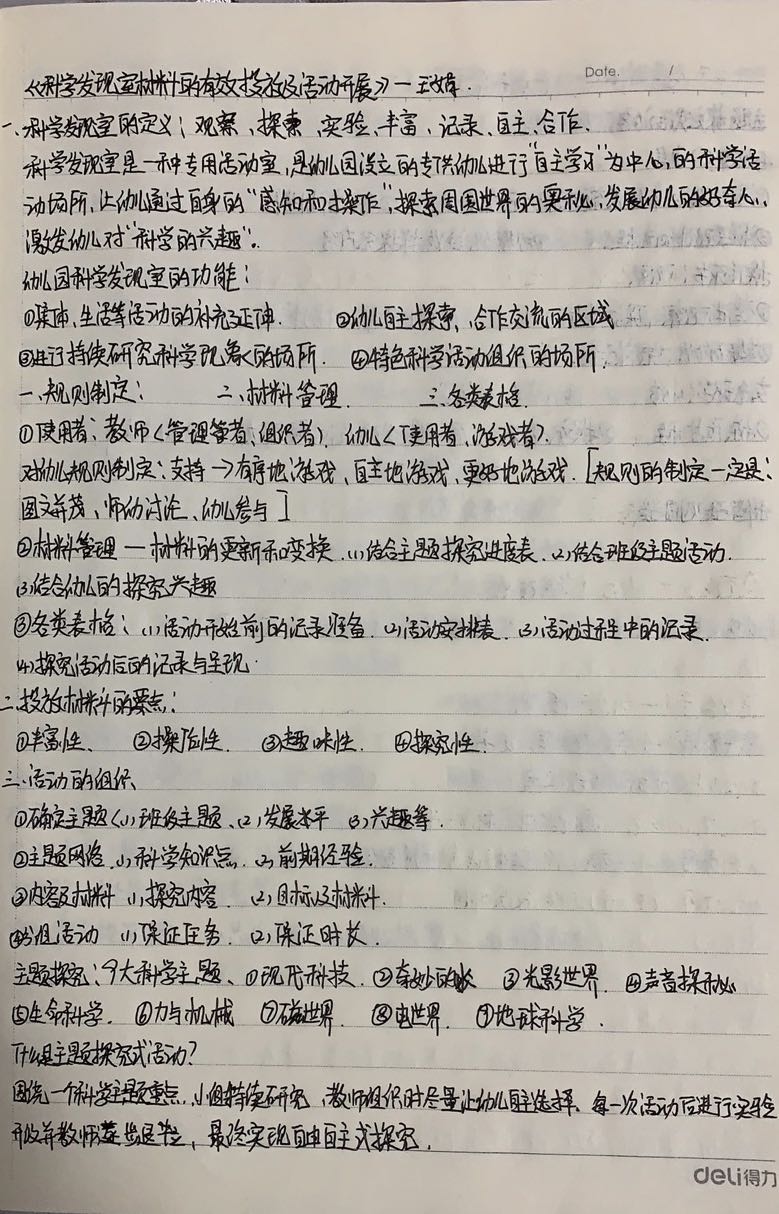 Date. /
《科学发现室材料的有效投放及活动开展》—王婷.
一、科学发现室的定义:观察、探索、实验、丰富、记录、自主、合作.
科学发现室是一种专用活动室,是幼儿园设立的专供幼儿进行"自主学习"为中心,的科学活
动场所,让幼儿通过自身的"感知和操作",探索周围世界的奥秘,发展幼儿的好奇心,
激发幼儿对"科学的兴趣"。
幼儿园科学发现室的功能:
①集体、生活等活动的补充及延伸. ②幼儿自主探索、合作交流的区域
③进行持续研究科学现象的场所. ④特色科学活动组织的场所.
一、规则制定: 二、材料管理. 三、各类表格.
①使用者:教师<管理者、组织者>. 幼儿<使用者、游戏者>.
对幼儿规则制定:支持→有序地游戏、自主地游戏、更好地游戏.[规则的制定一定是:
图文并茂、师幼讨论、幼儿参与]
②材料管理—材料的更新和变换.(1)结合主题探究进度表.(2)结合班级主题活动.
(3)结合幼儿的探究兴趣
③各类表格:(1)活动开始前的记录准备.(2)活动安排表.(3)活动过程中的记录.
(4)探究活动后的记录与呈现.
二、投放材料的要点:
①丰富性、 ②操作性. ③趣味性. ④探究性.
三、活动的组织
①确定主题<(1)班级主题、(2)发展水平 (3)兴趣等.
②主题网络.(1)科学知识点.(2)前期经验.
③内容及材料 (1)探究内容. (2)目标及材料.
④分组活动 (1)保证任务. (2)保证时长.
主题探究:9大科学主题、①现代科技.②奇妙的水 ③光影世界.④声音探秘
⑤生命科学. ⑥力与机械 ⑦磁世界. ⑧电世界. ⑨地球科学.
什么是主题探究式活动?
围绕一个科学主题重点,小组持续研究,教师组织时尽量让幼儿自主选择、每一次活动后进行实验
开放并教师逐步退位,最终实现自由自主式探究.
deli得力